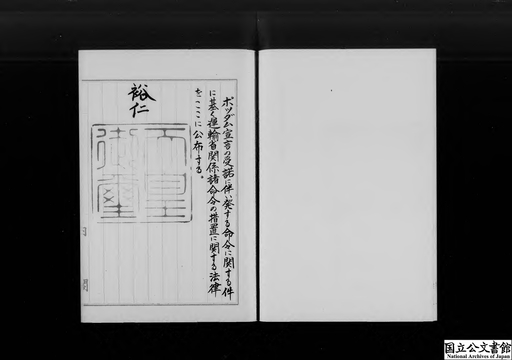 ポツダム宣言の受諾に伴い発する命令に関する件
に基く運輸省関係諸命令の措置に関する法律
をここに公布する。
裕仁
天皇
御璽
国立公文書館
National Archives of Japan